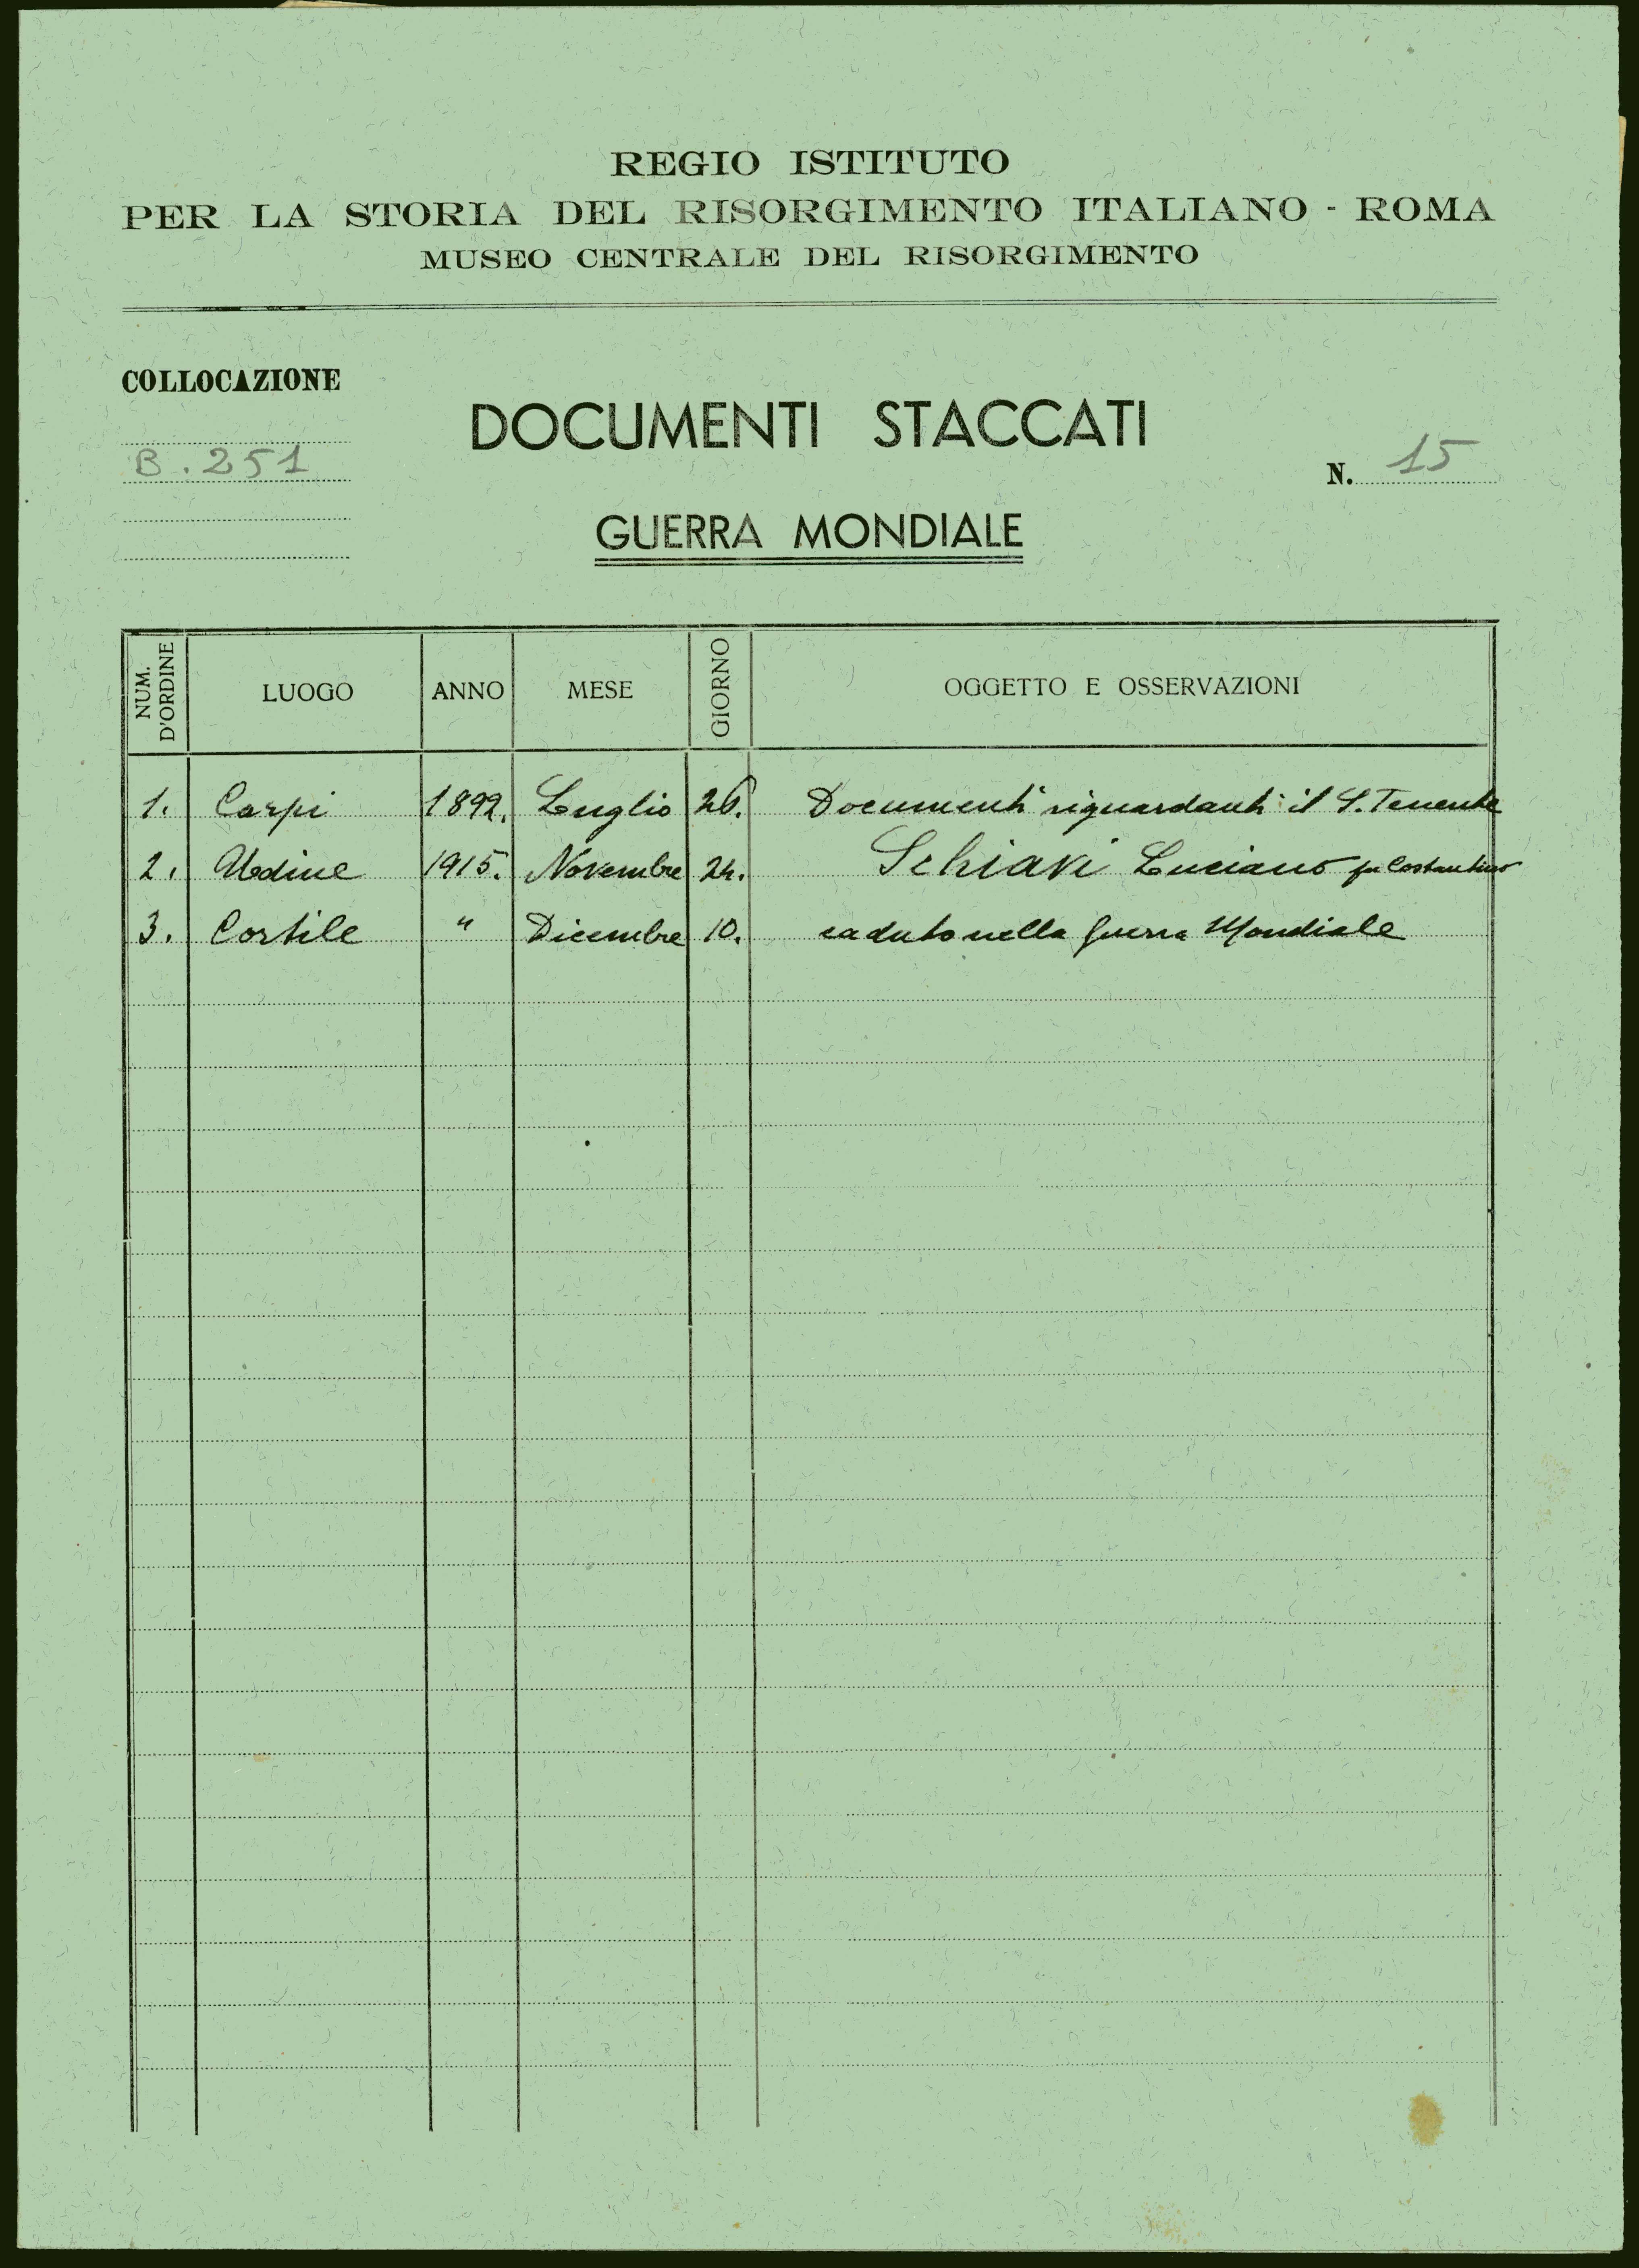 REGIO ISTITUTO
PER LA STORIA DEL RISORGIMENTO ITALIANO - ROMA
MUSEO CENTRALE DEL RISORGIMENTO
COLLOCAZIONE
DOCUMENTI STACCATI
B. 251
N. 15
GUERRA MONDIALE
NUM. D'ORDINE LUOGO ANNO MESE GIORNO OGGETTO E OSSERVAZIONI
1. Carpi 1892. Luglio 26. Documenti riguardanti il S. Tenente
2. Udine 1915. Novembre 24. Schiavi Luciano fu Costantino
3. Cortile " Dicembre 10. caduto nella guerra Mondiale